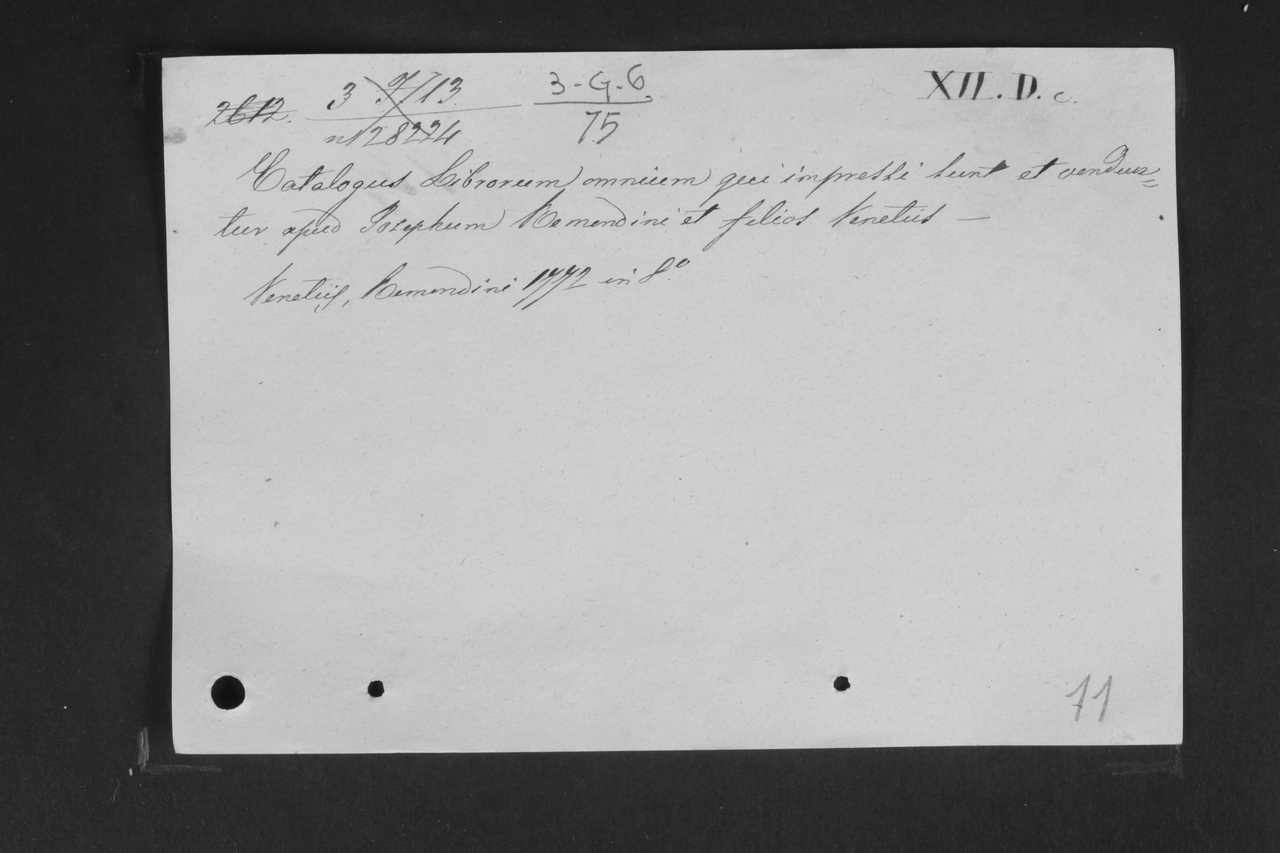 2612. 3 7/13 3-G-6 XII. D. c.
n 28224 75
Catalogus Librorum omnium qui impressi sunt et vendun=
tur apud Josephum Remondini et filios Venetiis —
Venetiis, Remondini 1772 in 8.°
11